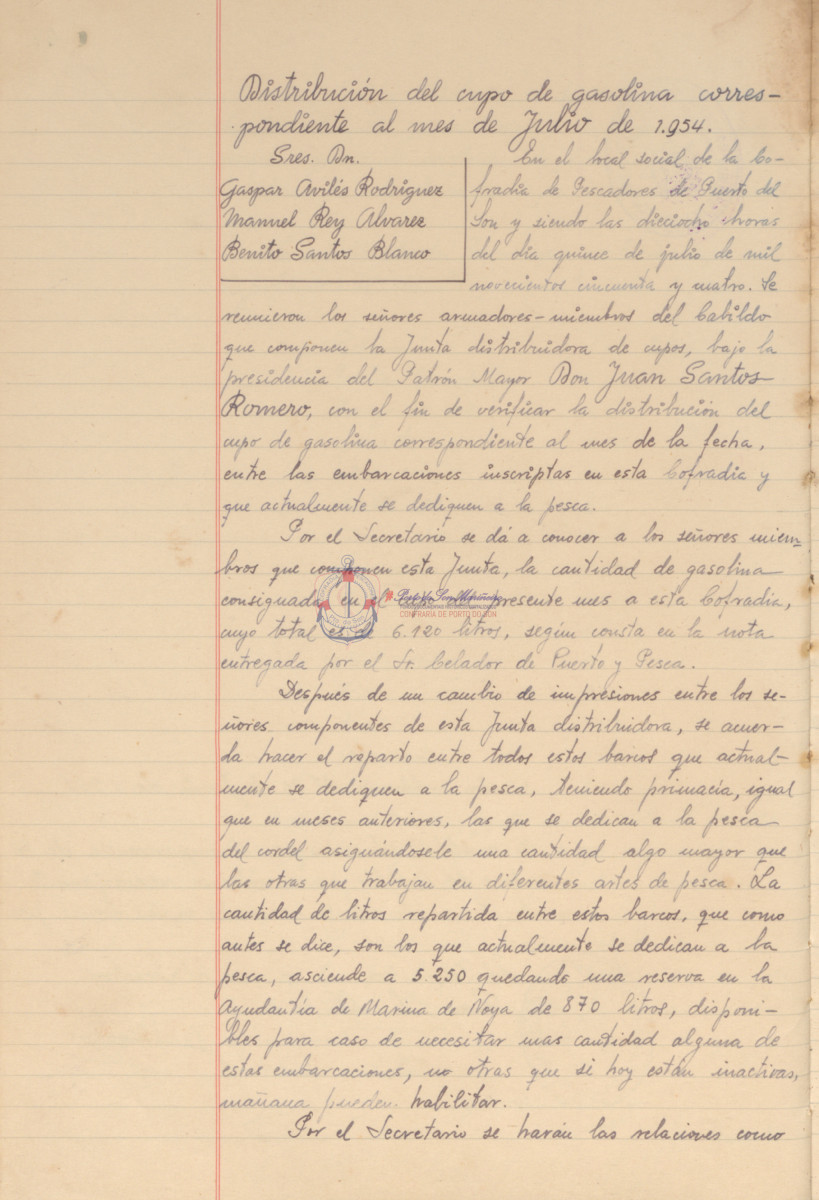 Distribución del cupo de gasolina corres-
pondiente al mes de Julio de 1.954.
Sres. Dn.
Gaspar Avilés Rodriguez
Manuel Rey Alvarez
Benito Santos Blanco
En el local social de la Co-
fradia de Pescadores de Puerto del
Son y siendo las dieciocho horas
del dia quince de julio de mil
novecientos cincuenta y cuatro. Se
reunieron los señores armadores-miembros del Cabildo
que componen la Junta distribuidora de cupos, bajo la
presidencia del Patrón Mayor Don Juan Santos
Romero, con el fin de verificar la distribución del
cupo de gasolina correspondiente al mes de la fecha,
entre las embarcaciones inscriptas en esta Cofradia y
que actualmente se dediquen a la pesca.
Por el Secretario se dá a conocer a los señores miem-
bros que componen esta Junta, la cantidad de gasolina
consignada en el mes del presente mes a esta Cofradia,
CONFRARIA DE PORTO DO SON
cuyo total es de 6.120 litros, según consta en la nota
entregada por el Sr. Celador de Puerto y Pesca.
Después de un cambio de impresiones entre los se-
ñores componentes de esta Junta distribuidora, se acuer-
da hacer el reparto entre todos estos barcos que actual-
mente se dediquen a la pesca, teniendo primacía, igual
que en meses anteriores, las que se dedican a la pesca
del cordel asignándosele una cantidad algo mayor que
las otras que trabajan en diferentes artes de pesca. La
cantidad de litros repartida entre estos barcos, que como
antes se dice, son los que actualmente se dedican a la
pesca, asciende a 5.250 quedando una reserva en la
Ayudantía de Marina de Noya de 870 litros, disponi-
bles para caso de necesitar mas cantidad alguna de
estas embarcaciones, no otras que si hoy están inactivas,
mañana pueden habilitar.
Por el Secretario se harán las relaciones como